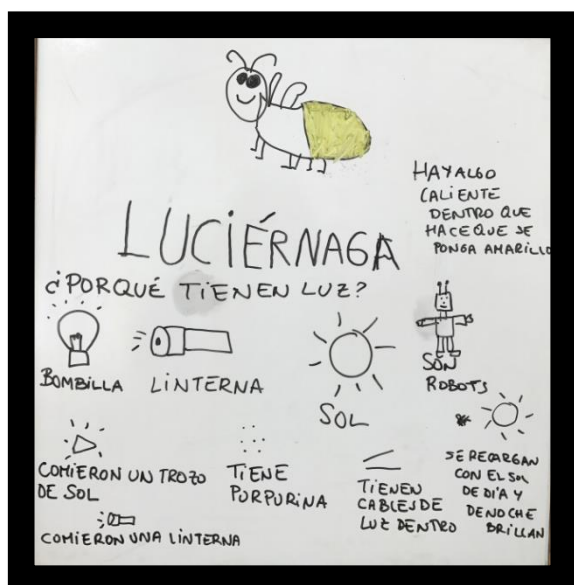 LUCIÉRNAGA
HAY ALGO
CALIENTE
DENTRO QUE
HACE QUE SE
PONGA AMARILLO
¿PORQUÉ TIENEN LUZ?
BOMBILLA
LINTERNA
SOL
SON
ROBOTS
COMIERON UN TROZO
DE SOL
TIENE
PURPURINA
TIENEN
CABLES DE
LUZ DENTRO
SE RECARGAN
CON EL SOL
DE DÍA Y
DE NOCHE
BRILLAN
COMIERON UNA LINTERNA